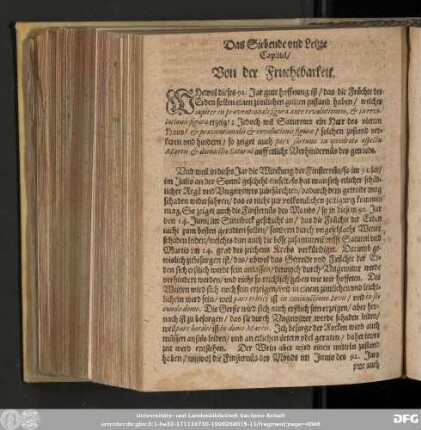 Das Siebende vnd Letzte
Capitel/
Von der Fruchtbarkeit.
WJewol dieses 92. Jar gute hoffnung ist / das die Früchte der
Erden sollen einen zimlichen guten zustand haben / welches
Jupiter in praeventionali figura ante revolutionem, & in revo-
lutionis figura erzeigt: Jedoch wil Saturnus ein Herr des vierten
Hauses & praeventionalis & revolutionis figurae / solchen zustand ver-
kern vnd hindern / so zeiget auch pars fortunae in quadrato aspectu
Martis & domicilio Saturni
Vnd weil in dieses Jar die Wirckung der Finsternüs / so im 91. Jar /
im Julio an der Sonn geschehe
licher Regen vnd Vngewitters zubefürchten / dadurch dem getreide mag
schaden widerfahren / das es nicht zur volkomlichen zeitigung kommen
mag. So zeiget auch die Finsternüs des Monds / so in diesem 92. Jar
den 14. Junij im Steinbock geschicht an / das die Früchte der Erden
nicht zum besten geraten sollen / sondern durch vngeschlacht Wetter
schaden leiden / welches dan auch die böse zusammenkunfft Saturni vnd
Martis im 14. grad des zeichens Krebs verkündiget. Darumb ge-
wislich zubesorgen ist / das / obwol das Getreide vnd Früchte der Er-
den sich erstlich werde sein anlassen / dennoch durch Vngewitter werde
verhindert werden / vnd nicht so reichlich geben wie wir hoffeten. Der
Weitzen wird sich noch sein erzeigen / vnd in einem zimlichen vnd leicht-
lichem werd sein / weil pars tritici ist in coniunctione Iovis / vnd in se-
cunda domo. Die Gerste wird sich auch erstlich sein erzeigen / aber her-
nach ist zu besorgen / das sie durch Vngewitter werde schaden leiden /
weil pars hordei ist in domo Martis. Jch besorge der Rocken werd auch
müssen anfals leiden / vnd an etlichen örtern vbel geraten / daher denn
Der Wein aber wird einen mitteln zustand
haben / wiewol die Finsternüs des Monds im Junio des 92. Jars
zwar auch
Universitäts- und Landesbibliothek Sachsen-Anhalt
urn:nbn:de:gbv:3:1-
DFG